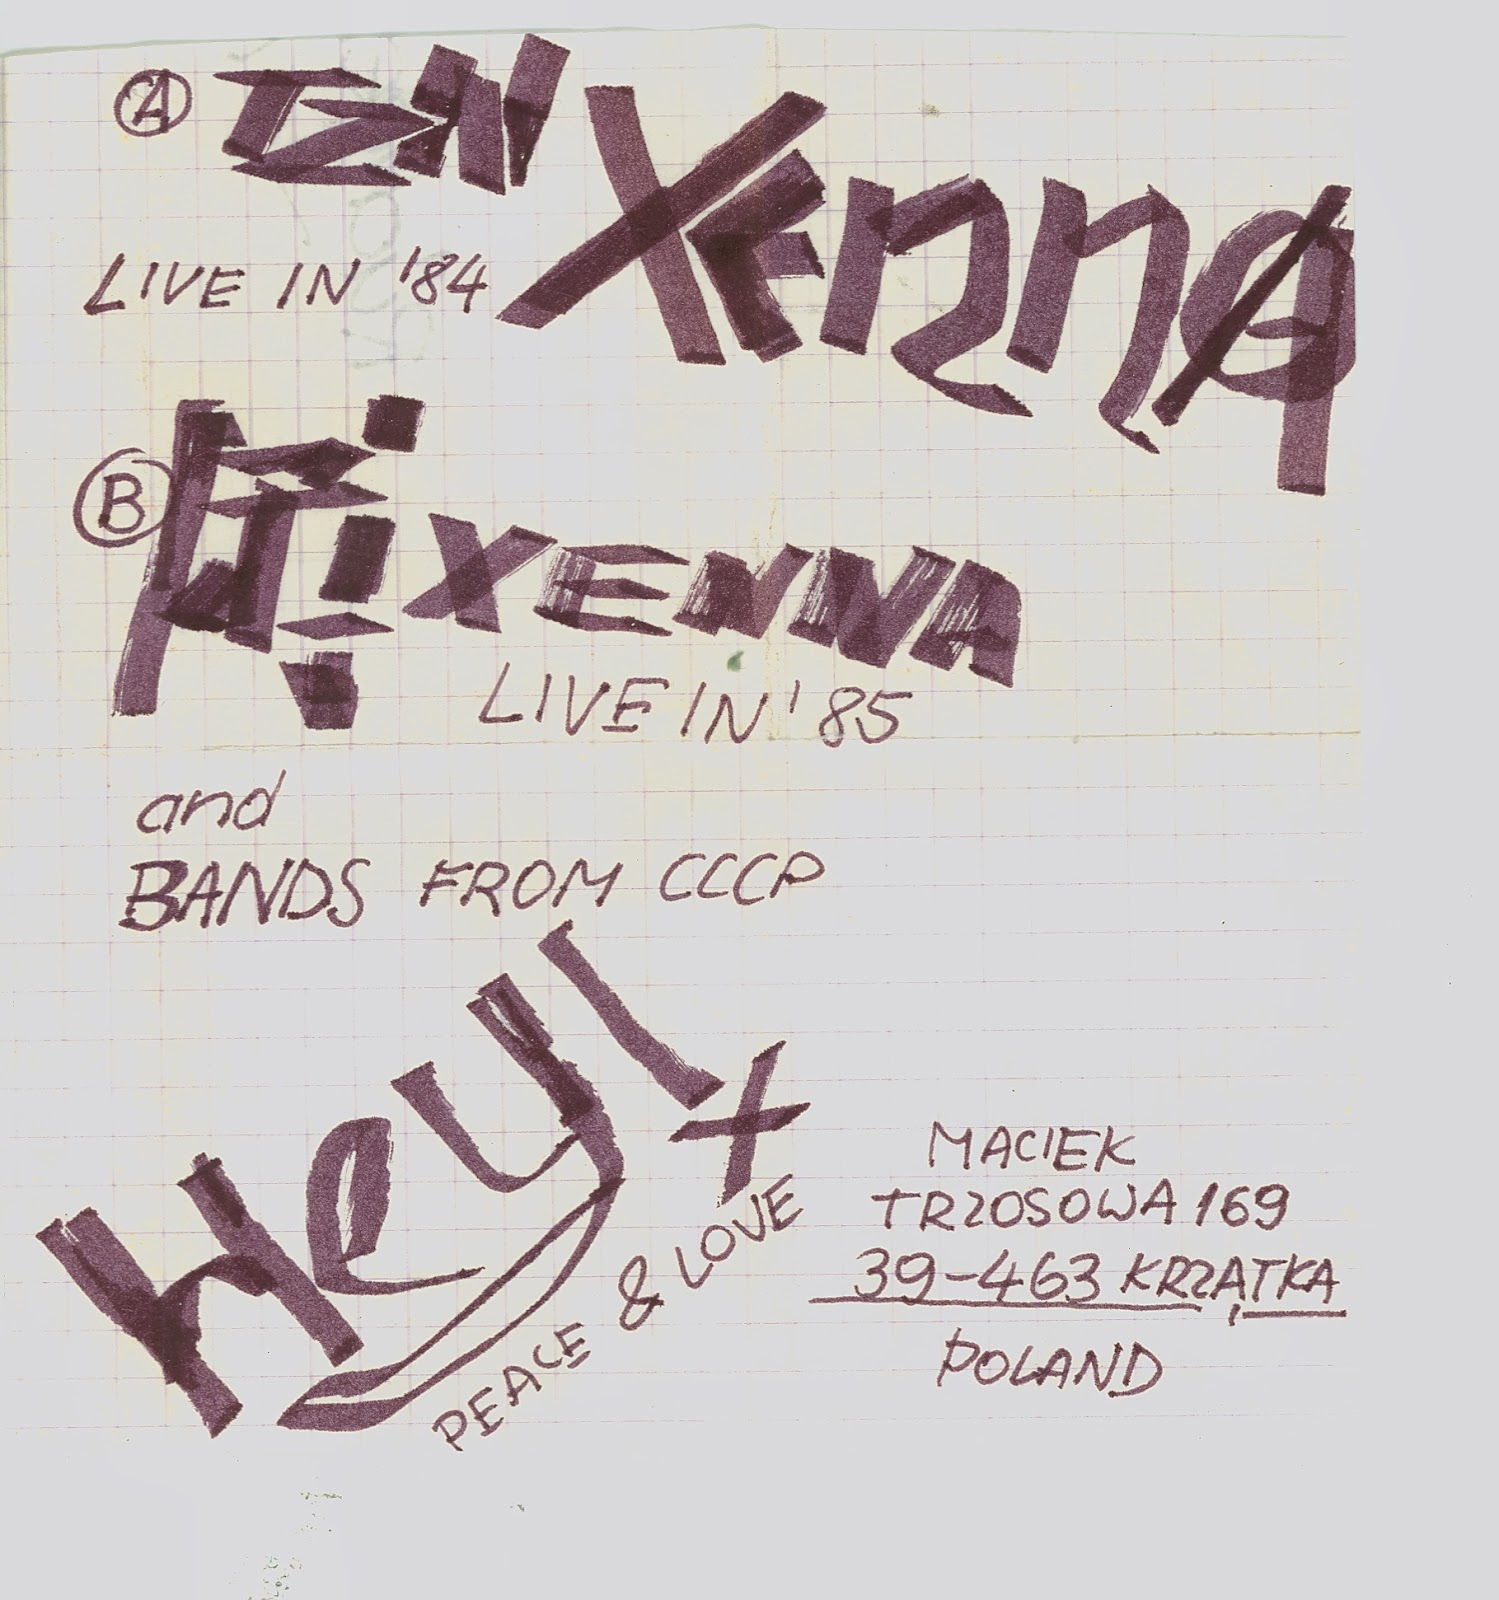 A TZN XENNA
LIVE IN '84
B XENNA
LIVE IN '85
and
BANDS FROM CCCP
Hey!
PEACE & LOVE
MACIEK
TRZOSOWA 169
39-463 KRZĄTKA
POLAND